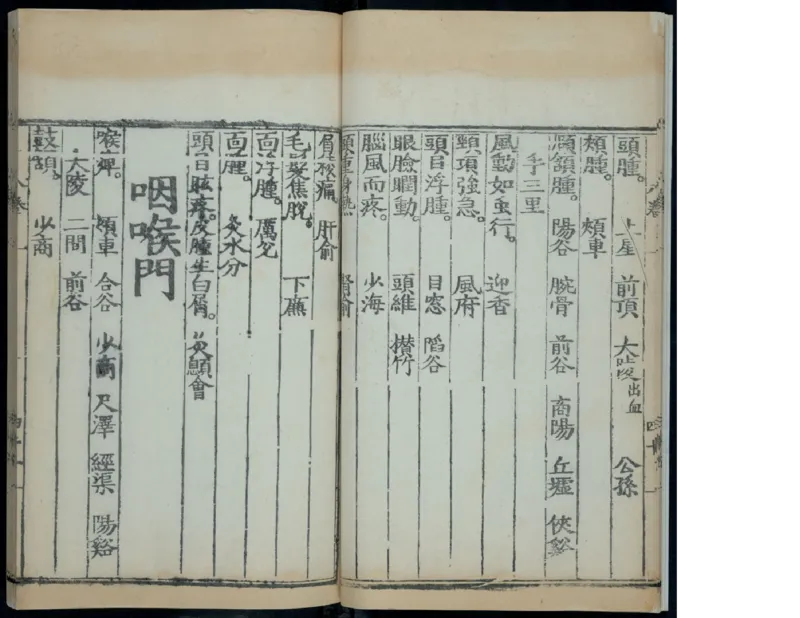 頭腫。 上星 前頂 大陵出血 公孫
頰腫。 頰車
頷腫。 陽谷 腕骨 前谷 商陽 丘墟 俠谿
手三里
風動如虫行。 迎香
頸項強急。 風府
頭目浮腫。 目窓 陷谷
眼瞼瞤動。 頭維 攅竹
腦風而疼。 少海
頭重身熱 腎俞
眉稜痛。 肝俞
毛髮焦脫。 下廉
面浮腫。 厲兌
面腫。 灸水分
頭目眩疼。皮腫生白屑。灸顖會
咽喉門
喉痺。 頰車 合谷 少商 尺澤 經渠 陽谿
大陵 二間 前谷
鼓頷。 少商